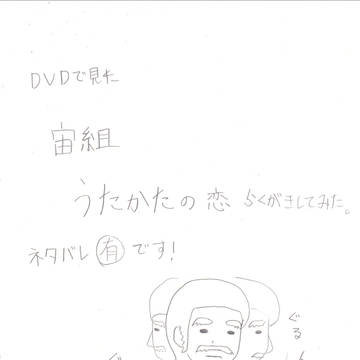 DVDで見た
宙組
うたかたの恋 らくがきしてみた。
ネタバレ有です!
ぐる
ぐ